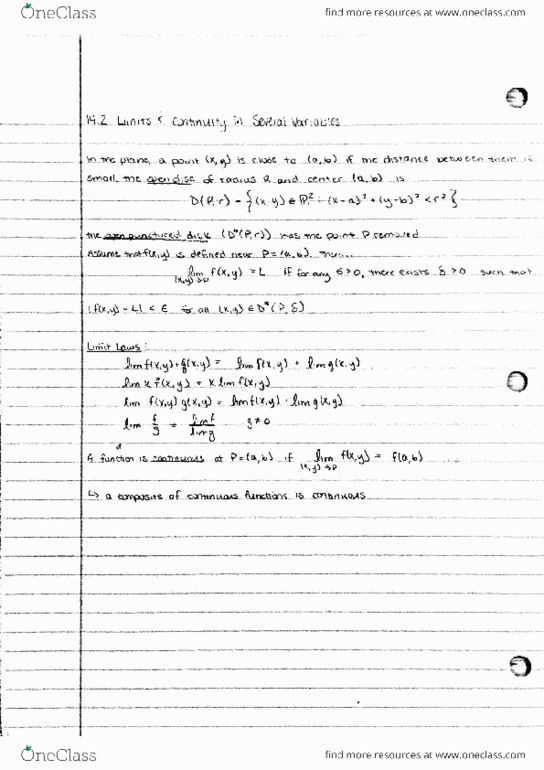 OneClass
find more resources at www.oneclass.com
14.2 Limits & Continuity in Several Variables
In the plane, a point (x,y) is close to (a,b) if the distance between them is
small. the open disc of radius R and center (a,b) is
D(P,r) = {(x,y) ∈ R² : (x-a)² + (y-b)² < r²}
the open punctured disk (D*(P,r)) has the point P removed
Assume that f(x,y) is defined near P=(a,b). Then...
lim f(x,y) = L if for any ε>0, there exists δ>0 such that
(x,y)→P
|f(x,y) - L| < ε for all (x,y) ∈ D*(P,δ)
Limit Laws:
lim f(x,y)+g(x,y) = lim f(x,y) + lim g(x,y)
lim k f(x,y) = k lim f(x,y)
lim f(x,y) g(x,y) = lim f(x,y) · lim g(x,y)
lim f/g = lim f / lim g g≠0
A function is continuous at P=(a,b) if lim f(x,y) = f(a,b)
(x,y)→P
↳ a composite of continuous functions is continuous
OneClass
find more resources at www.oneclass.com